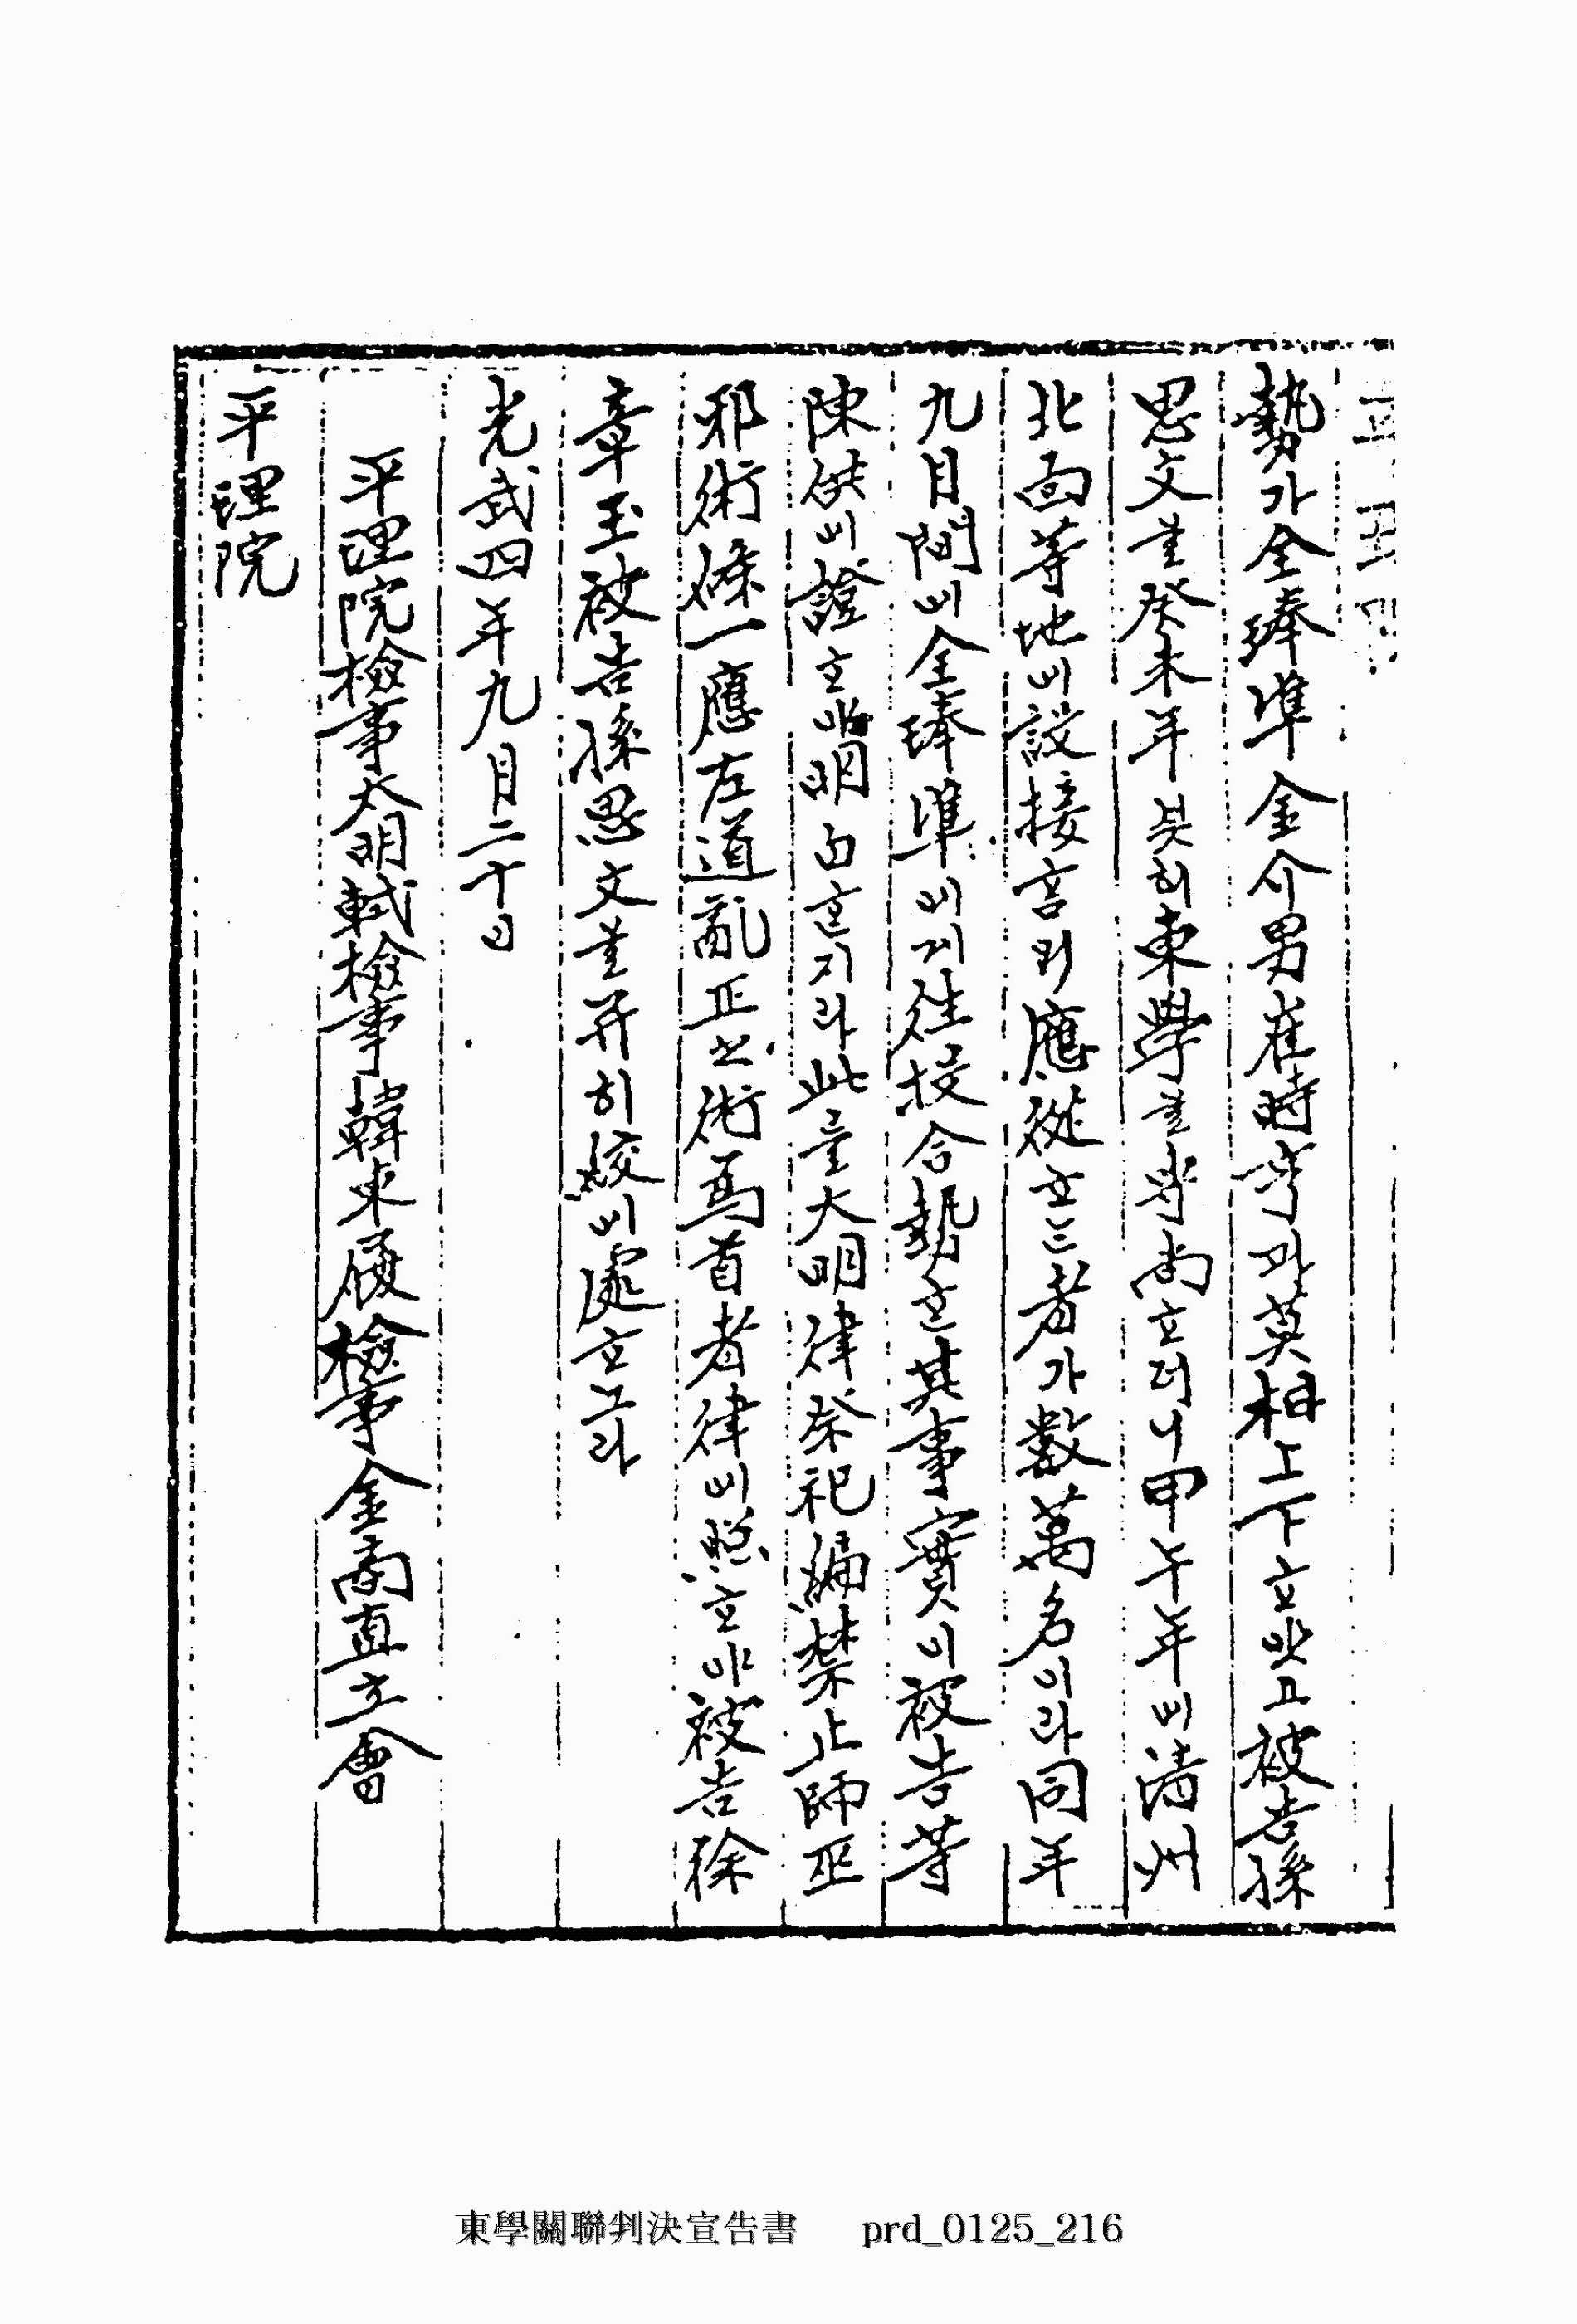 勢가全琫準金介男崔時亨과莫相上下ᄒᆞ얏고被告孫
思文은癸未年븟허東學을崇尙ᄒᆞ더니甲午年에淸州
北面等地에設接ᄒᆞᆷᄋᆡ應從ᄒᆞᄂᆞᆫ者가數萬名이라同年
九月間에全琫準에게往投合勢ᄒᆞᆫ其事實이被告等
陳供에證ᄒᆞ야明白ᄒᆞᆫ지라此를大明律祭祀編禁止師巫
邪術條一應左道亂正之術爲首者律에照ᄒᆞ야被告徐
章玉被告孫思文을幷히絞에處ᄒᆞ노라
光武四年九月二十日
平理院檢事太明軾檢事韓東履檢事金商直立會
平理院
東學關聯判決宣告書 prd_0125_216